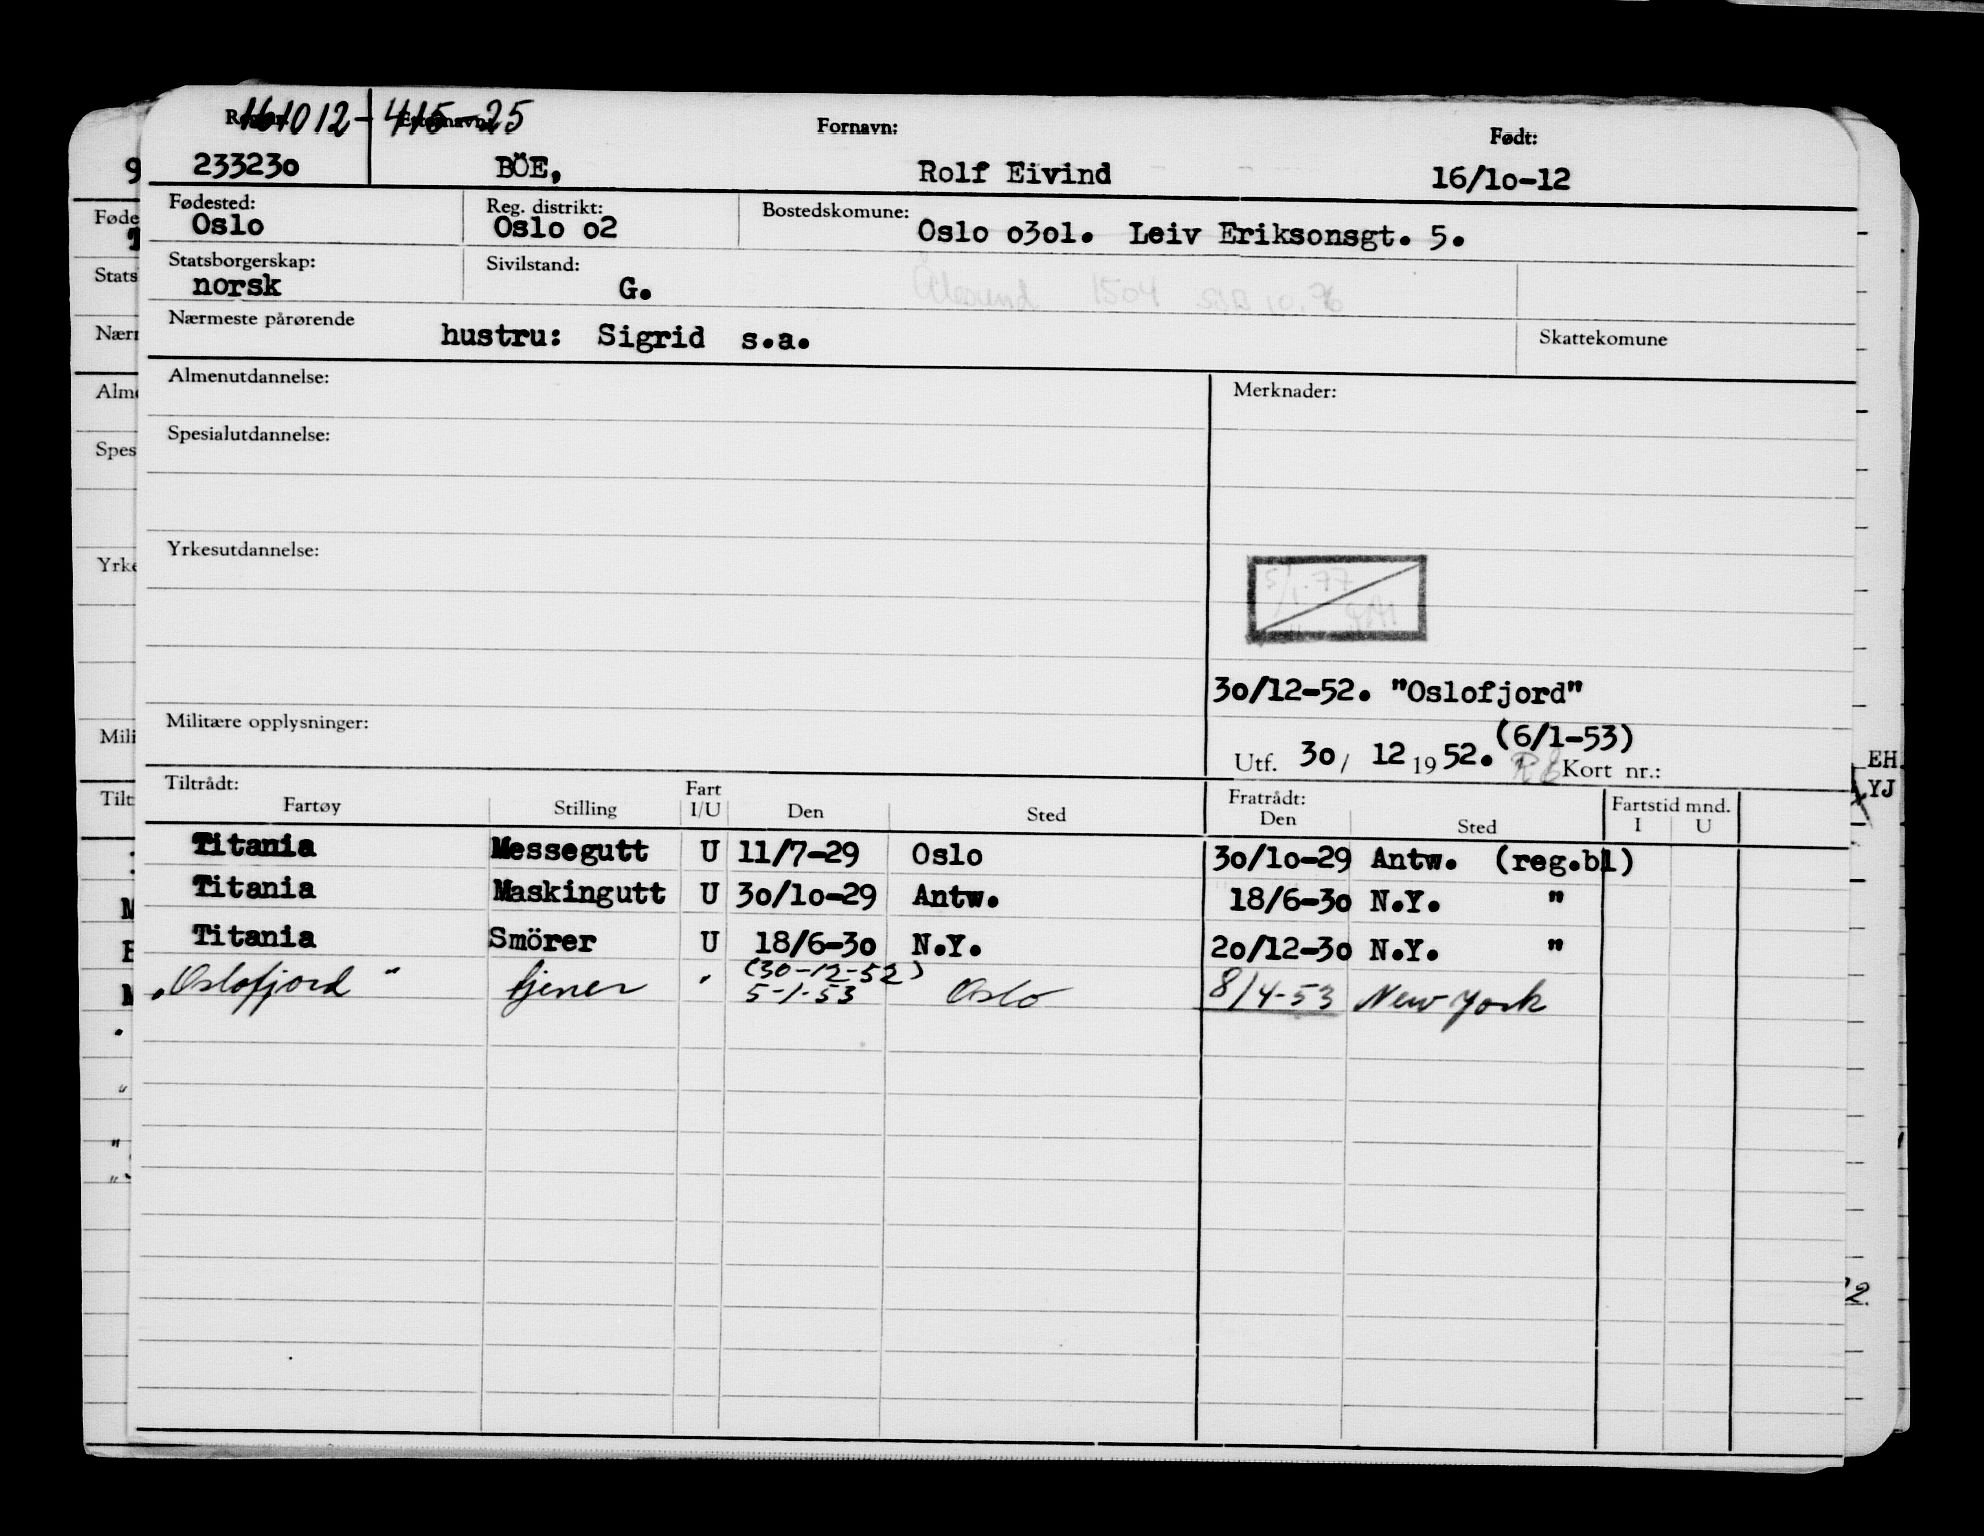 161012-41525
Etternavn: Fornavn: Født:
233230 BÖE, Rolf Eivind 16/10-12
Fødested: Reg. distrikt: Bostedskomune:
Oslo Oslo o2 Oslo o3o1. Leiv Eriksonsgt. 5.
Statsborgerskap: Sivilstand:
norsk G. Ålesund 1504 10.76
Nærmeste pårørende hustru: Sigrid s.a. Skattekomune
Almenutdannelse: Merknader:
Spesialutdannelse:
Yrkesutdannelse:
5/1-77
30/12-52. "Oslofjord"
Militære opplysninger: (6/1-53)
Utf. 30/ 12 1952. Kort nr.:
Tiltrådt: Fart Fratrådt: Fartstid mnd.
Fartøy Stilling I/U Den Sted Den Sted I U
Titania Messegutt U 11/7-29 Oslo 30/10-29 Antw. (reg.bl)
Titania Maskingutt U 30/10-29 Antw. 18/6-30 N.Y. "
Titania Smörer U 18/6-30 N.Y. 20/12-30 N.Y. "
(30-12-52)
„Oslofjord" tjener " 5-1-53 Oslo 8/4-53 New York
EH
YJ